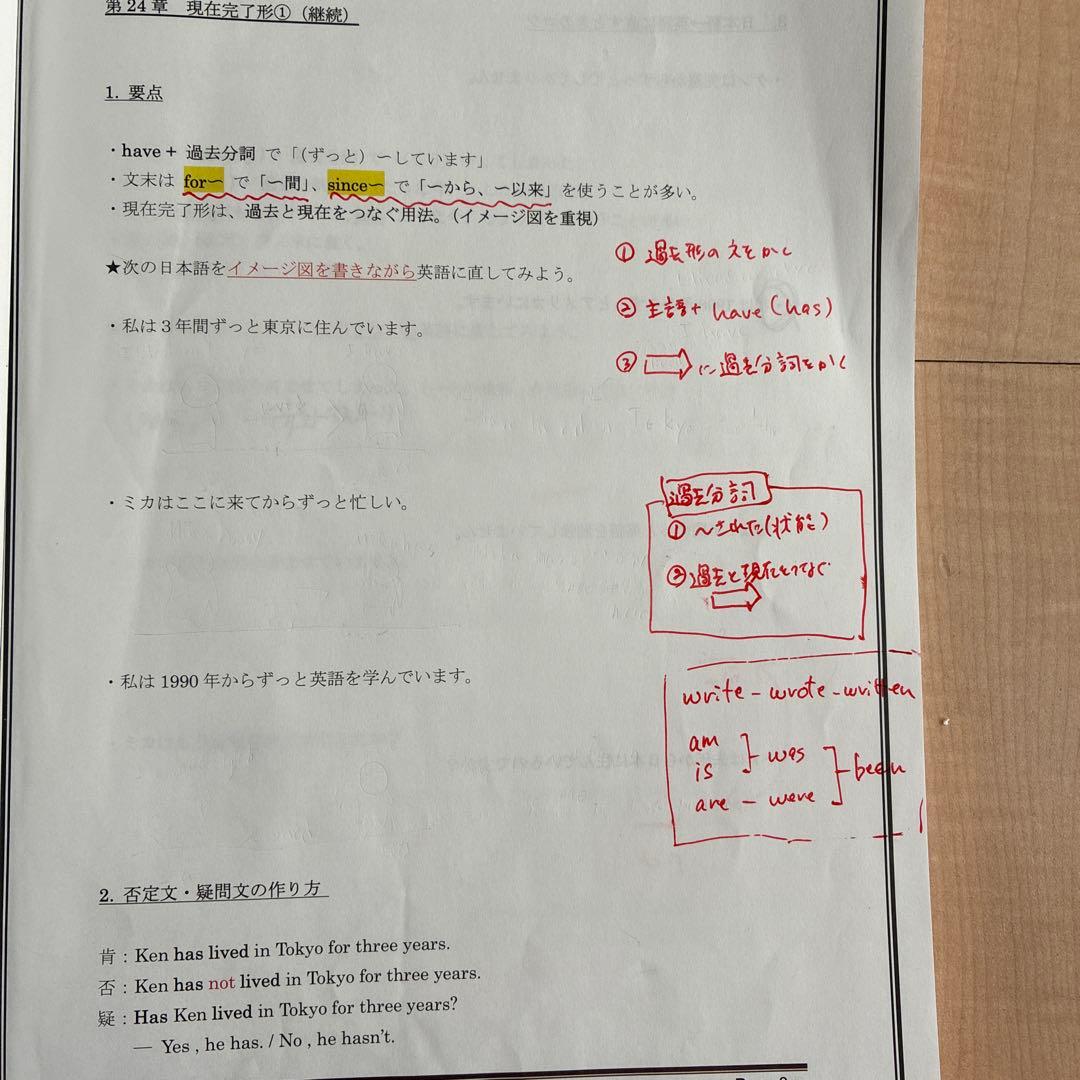 第24章 現在完了形①（継続）
1. 要点
・have + 過去分詞 で「（ずっと）〜しています」
・文末は for〜 で「〜間」、since〜 で「〜から、〜以来」を使うことが多い。
・現在完了形は、過去と現在をつなぐ用法。（イメージ図を重視）
① 過去形の文をかく
★次の日本語をイメージ図を書きながら英語に直してみよう。
② 主語+ have (has)
・私は３年間ずっと東京に住んでいます。
③ ⇨ に過去分詞をかく
過去分詞
・ミカはここに来てからずっと忙しい。
① 〜された(状態)
② 過去と現在をつなぐ
⇨
・私は 1990 年からずっと英語を学んでいます。
write - wrote - written
am
is
was
been
are - were
2. 否定文・疑問文の作り方
肯：Ken has lived in Tokyo for three years.
否：Ken has not lived in Tokyo for three years.
疑：Has Ken lived in Tokyo for three years?
― Yes , he has. / No , he hasn't.